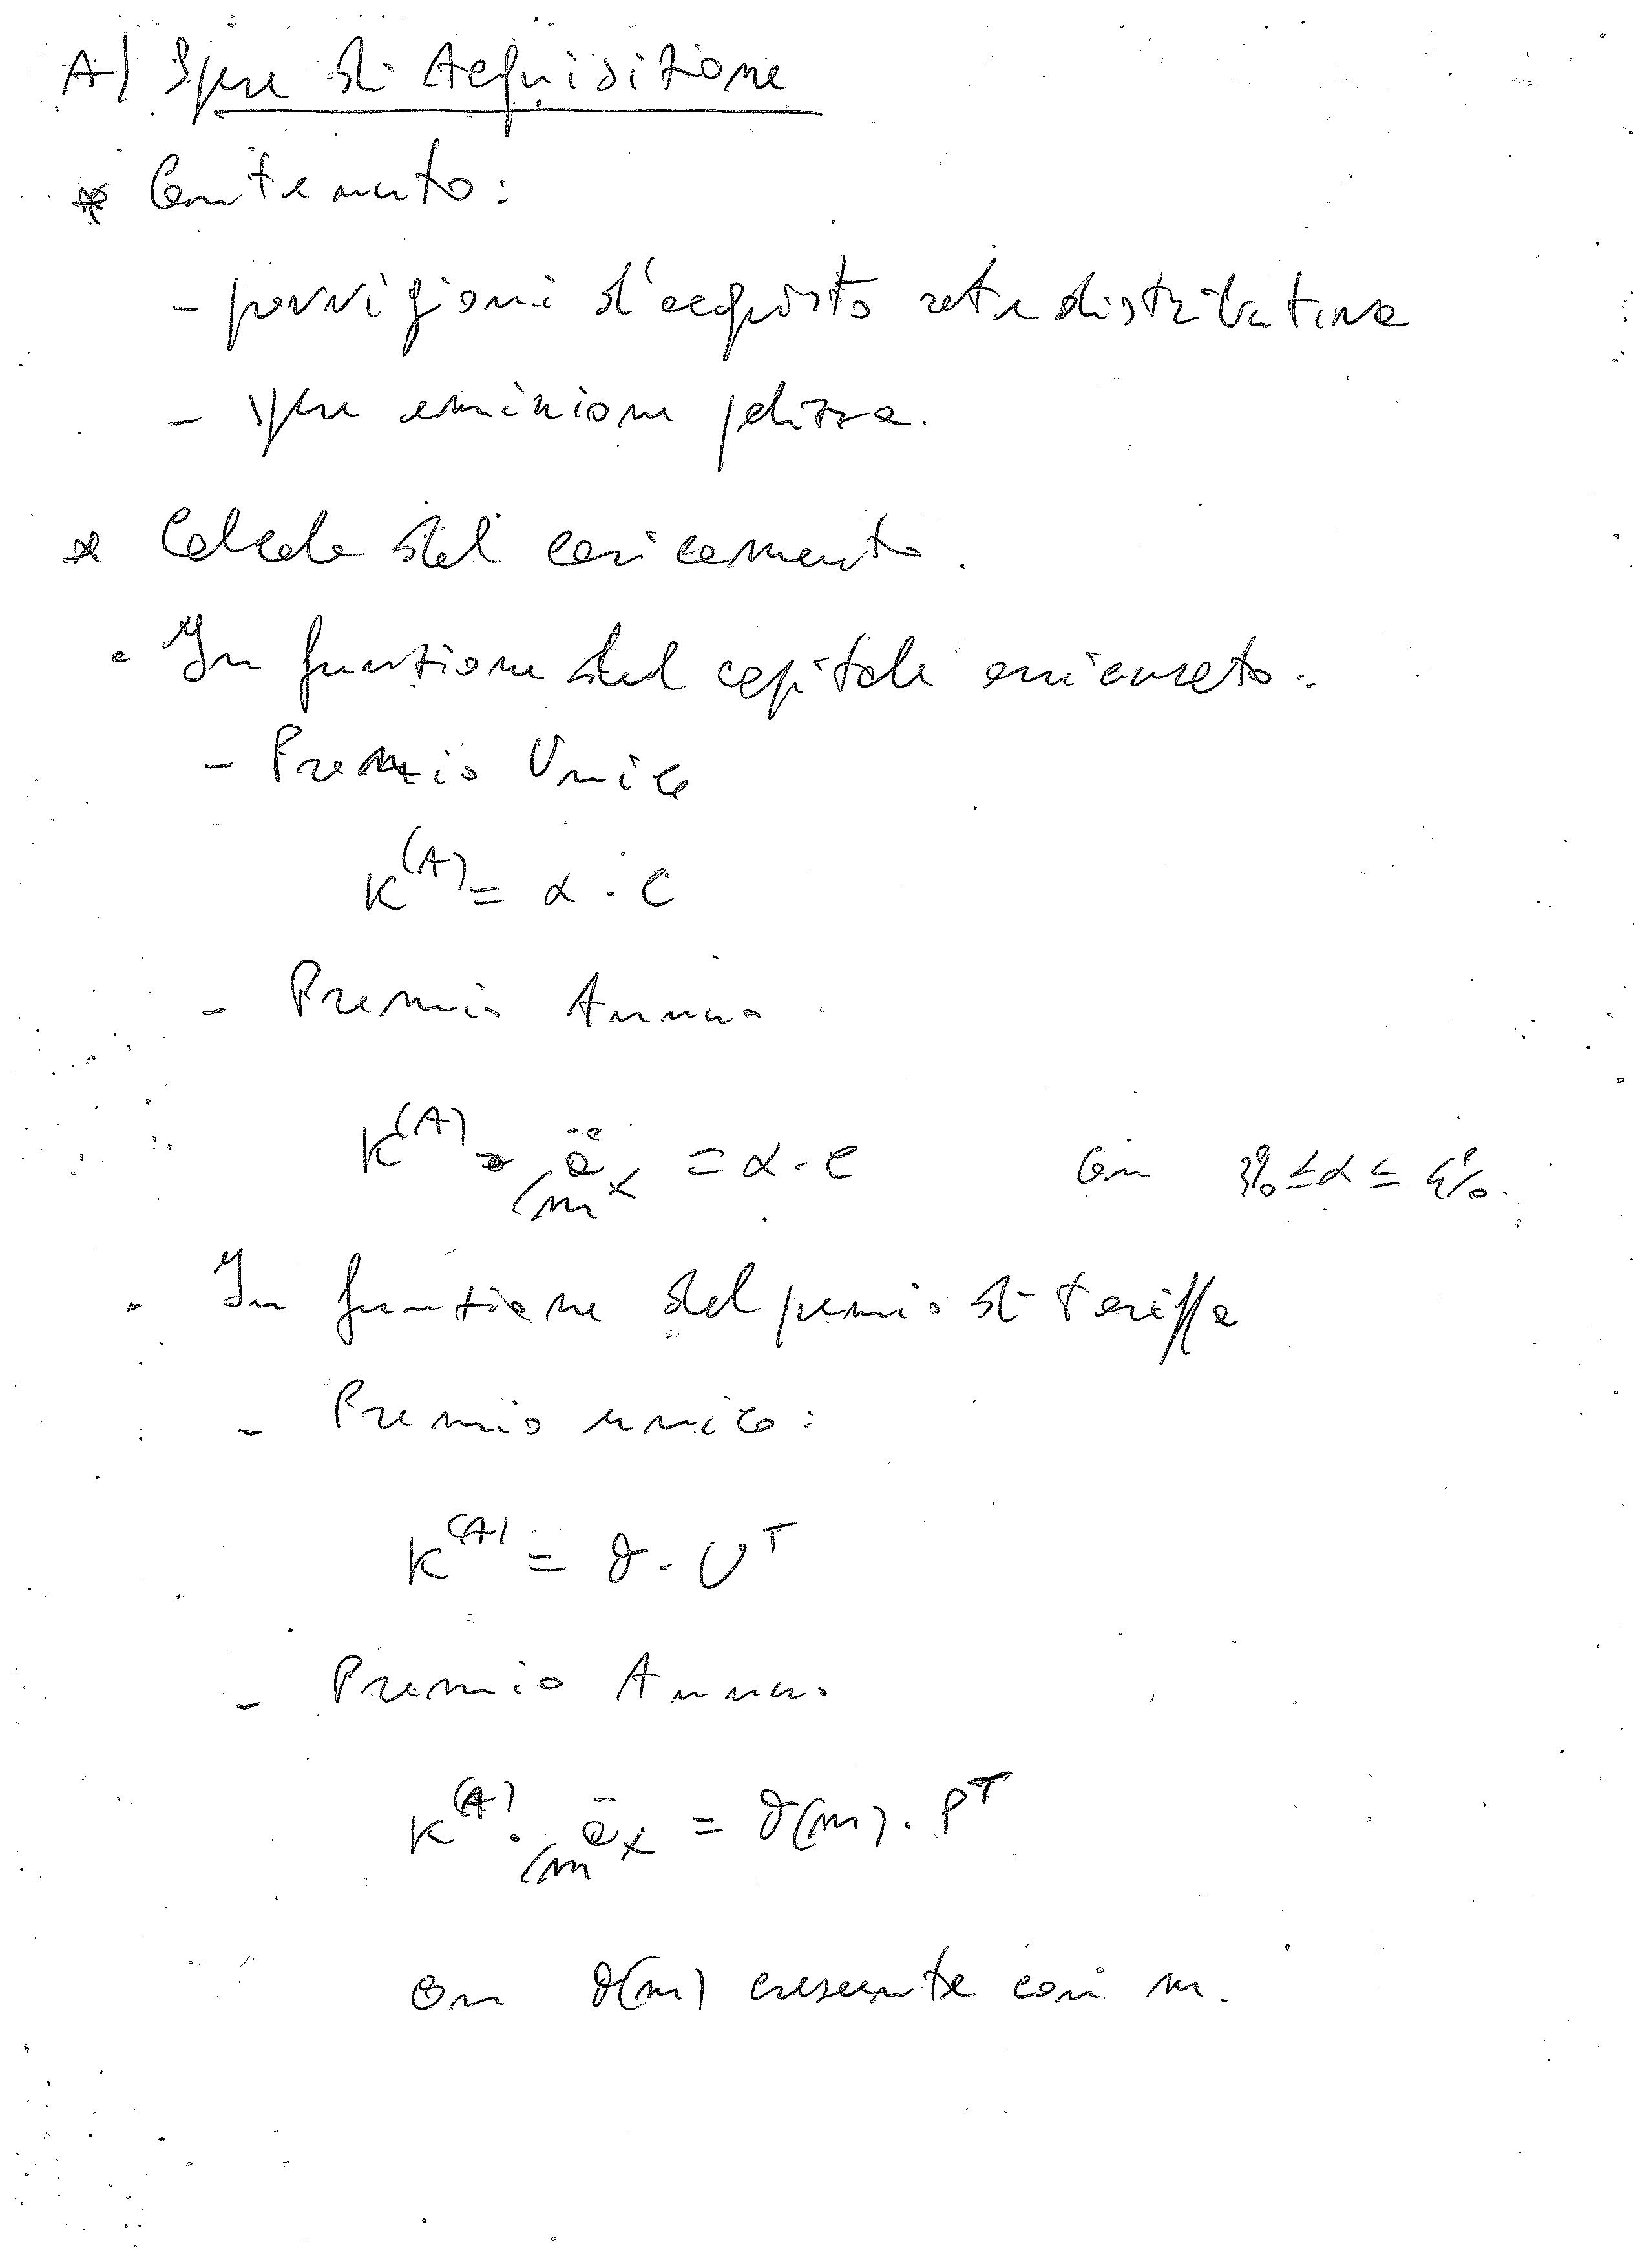 A) Spese di Acquisizione
* Contenuto:
- provvigioni d'acquisto rete distributiva
- spese emissione polizza.
* Calcolo del caricamento.
• In funzione del capitale assicurato:
- Premio Unico
K^(A) = α · C
- Premio Annuo
K^(A) · /m ä x = α · C con 3% ≤ α ≤ 4%.
• In funzione del premio di tariffa
- Premio unico:
K^(A) = ϑ · U^T
- Premio Annuo
K^(A) · /m ä x = ϑ(m) · P^T
con ϑ(m) crescente con m.